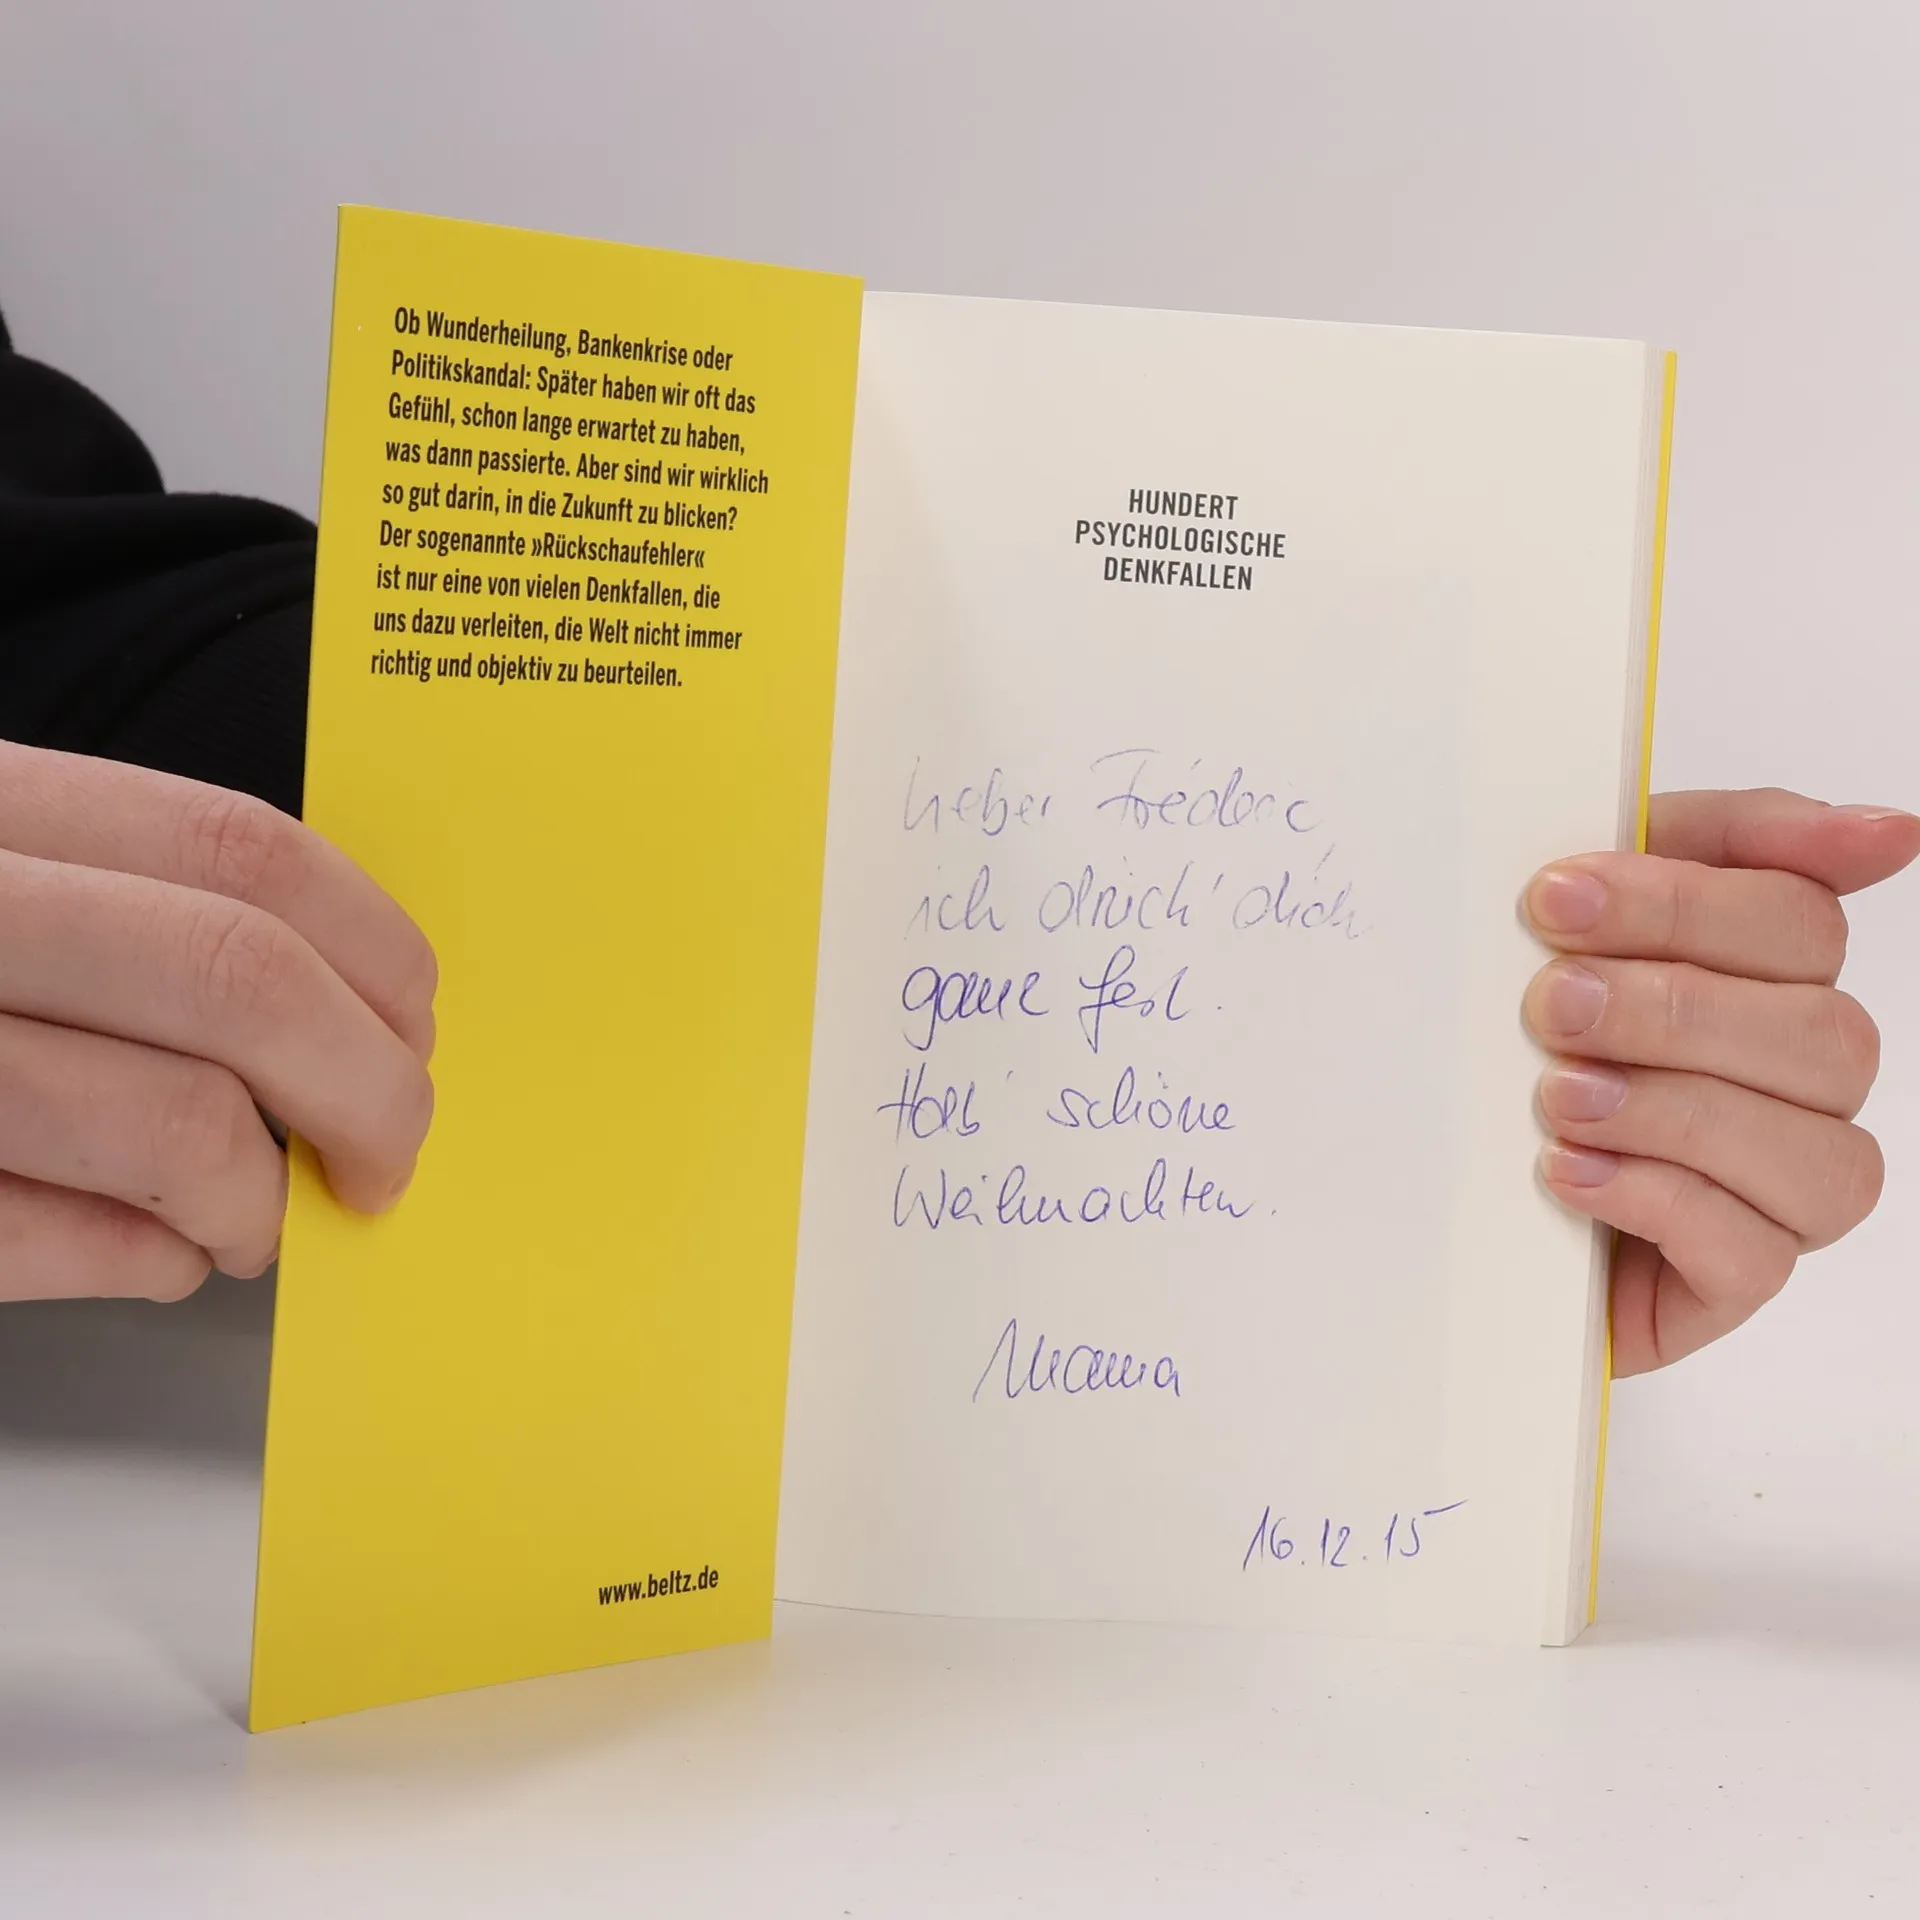 Ob Wunderheilung, Bankenkrise oder
Politikskandal: Später haben wir oft das
Gefühl, schon lange erwartet zu haben,
was dann passierte. Aber sind wir wirklich
so gut darin, in die Zukunft zu blicken?
Der sogenannte »Rückschaufehler«
ist nur eine von vielen Denkfallen, die
uns dazu verleiten, die Welt nicht immer
richtig und objektiv zu beurteilen.
www.beltz.de
HUNDERT
PSYCHOLOGISCHE
DENKFALLEN
Lieber Fréderic,
ich drück' dich
ganz fest.
Hab' schöne
Weihnachten.
Mama
16.12.15